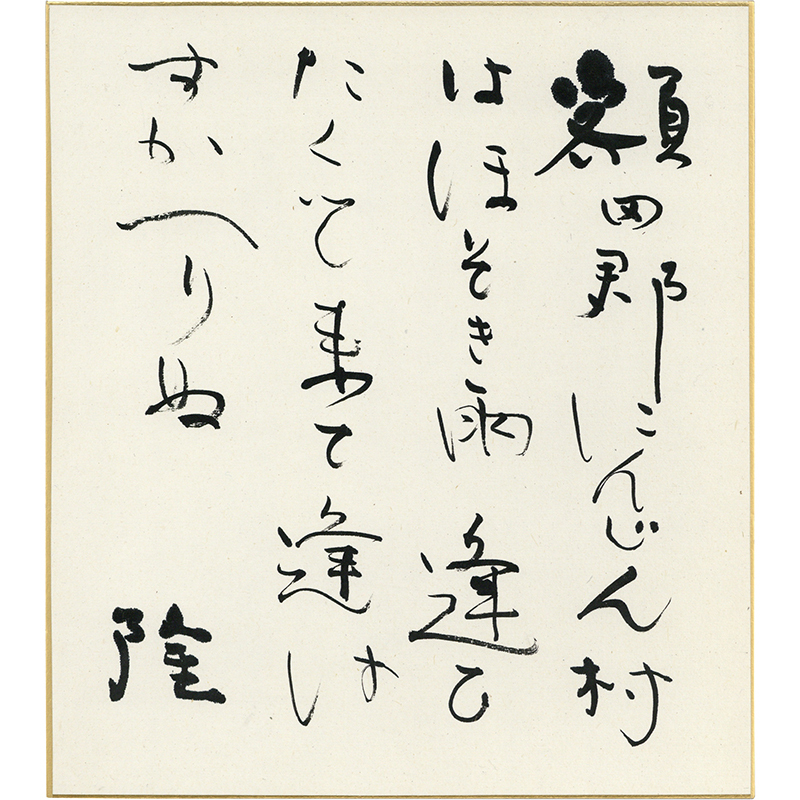 額田郡にんじん村
はほそき雨逢ひ
たくて来て逢は
ずかへりぬ
隆